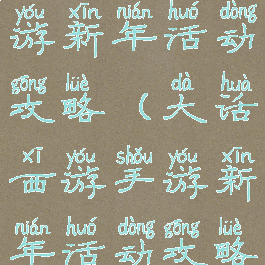 yóu xīn nián huó dòng
游新年活动
gōng lüè dà huà
攻略(大话
xī yóu shǒu yóu xīn
西游手游新
nián huó dòng gōng lüè
年活动攻略